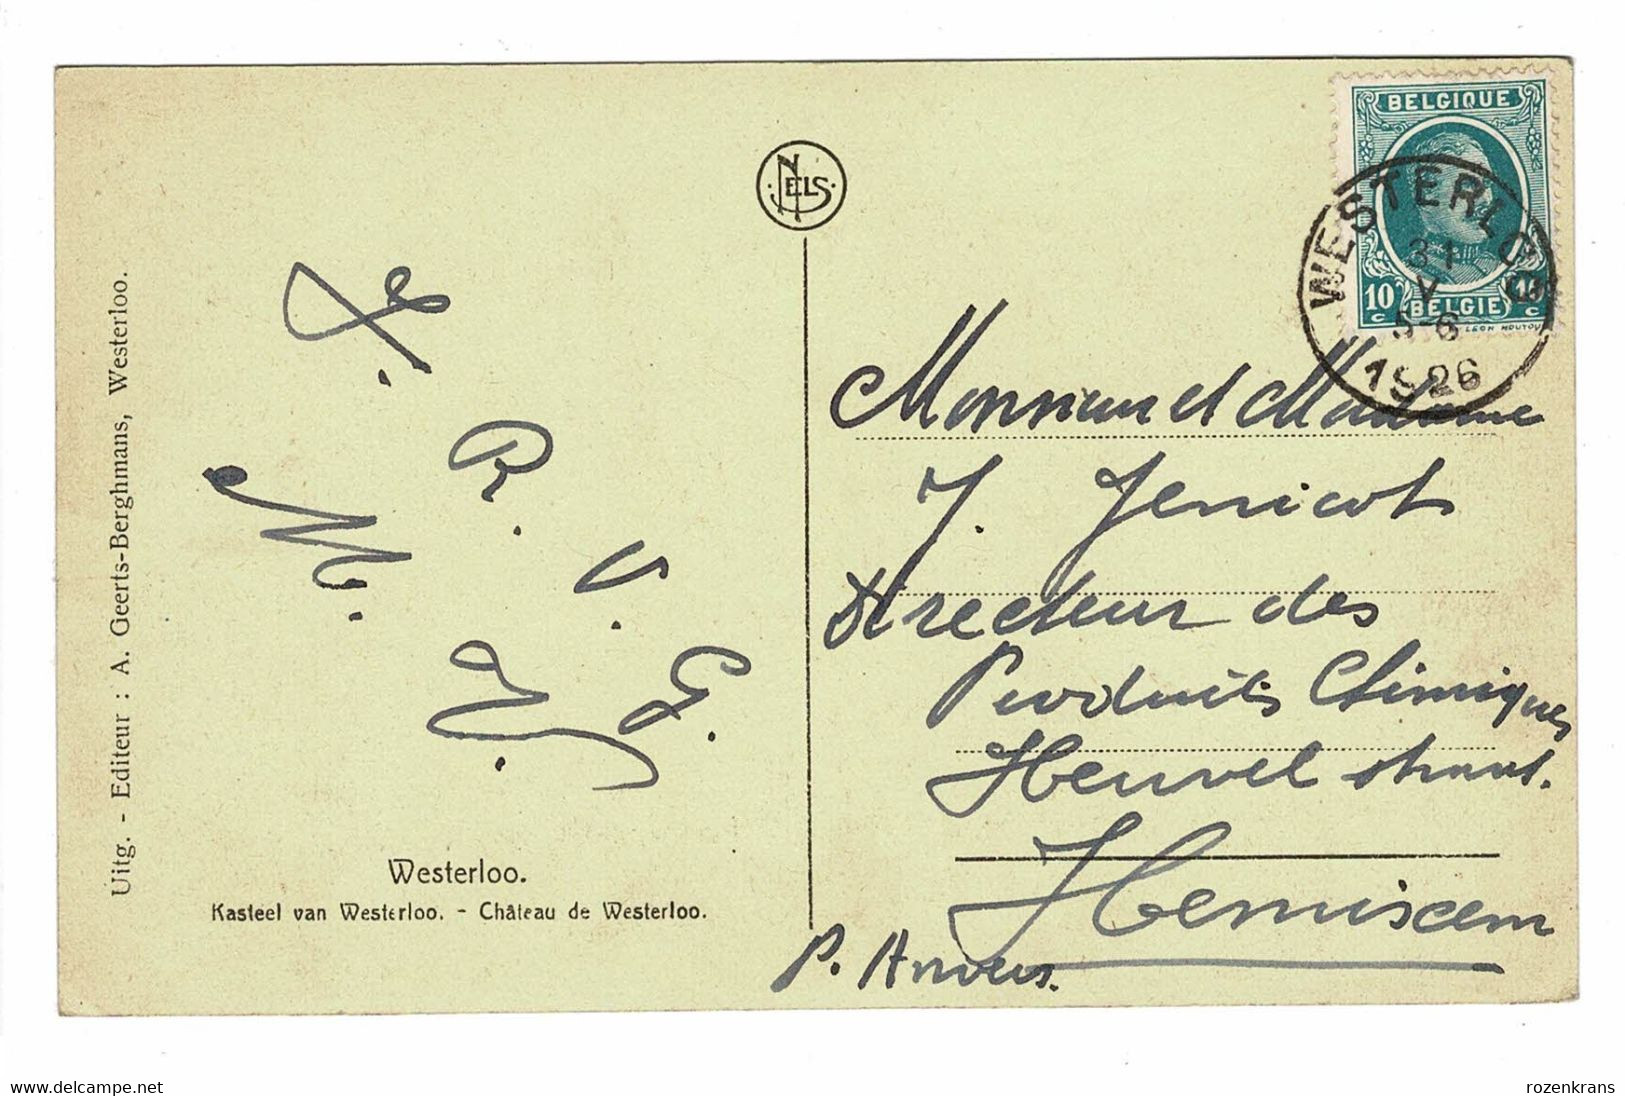 Uitg. - Editeur : A. Geerts-Berghmans, Westerloo.
NELS
BELGIQUE
10 c
10 c
BELGIË
LEON HOUYOU
WESTERLOO
31
V
5-6
1926
R.
V.
G.
M.
Westerloo.
Kasteel van Westerloo. - Château de Westerloo.
Monsieur et Madame
J. Jenicot
Directeur des
Produits Chimiques
Heuvel straat.
Hemiscem
P. Anvers.
www.delcampe.net
rozenkrans